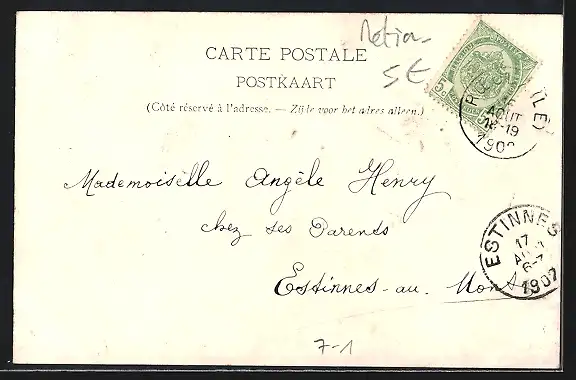 5 €
CARTE POSTALE
POSTKAART
(Côté réservé à l'adresse. — Zijde voor het adres alleen.)
AOUT
18-19
190
LE)
Mademoiselle Angèle Henry
chez ses Parents
Estinnes-au. Mont
ESTINNES
17
6-7
1902
7-1